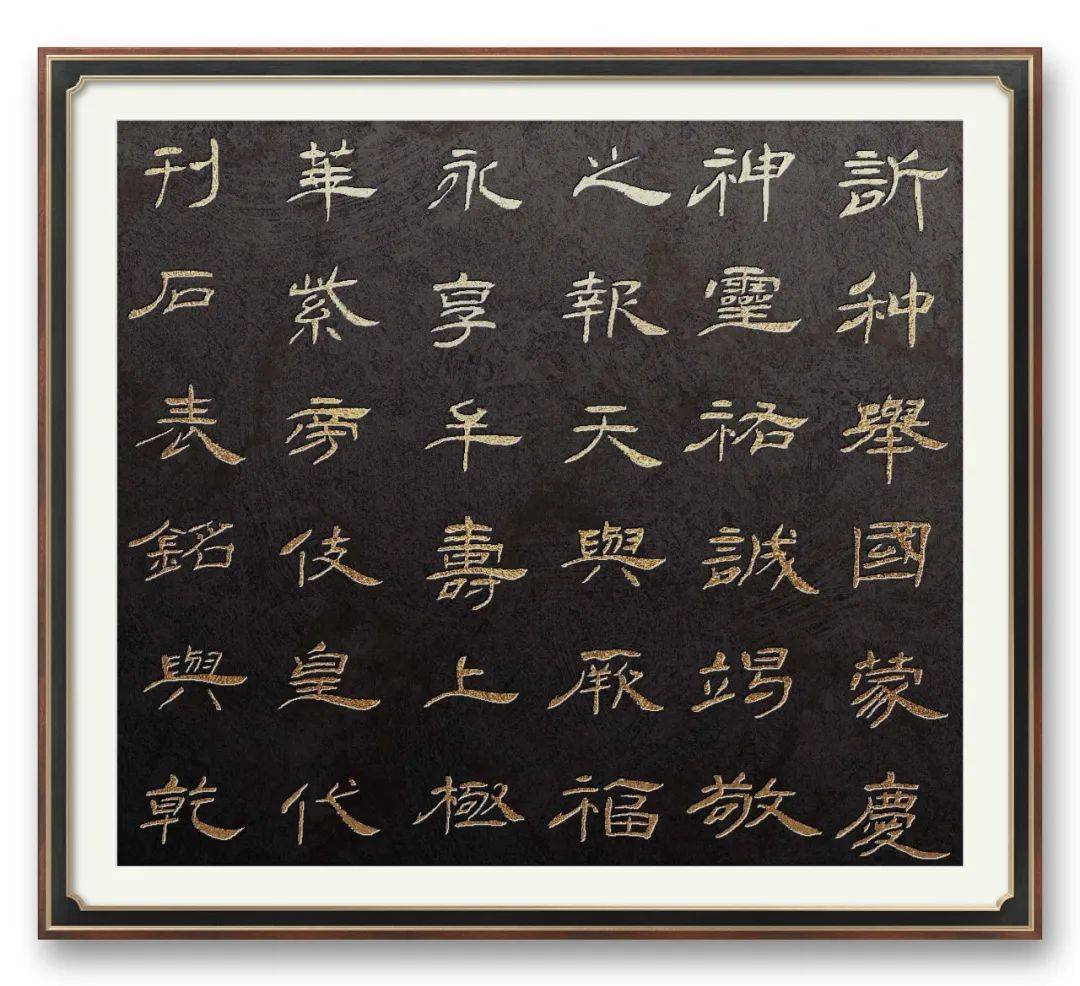 訢和舉國蒙慶
神靈祐誠竭敬
之報天與厥福
永享牟壽上極
華紫旁伎皇代
刊石表銘與乾